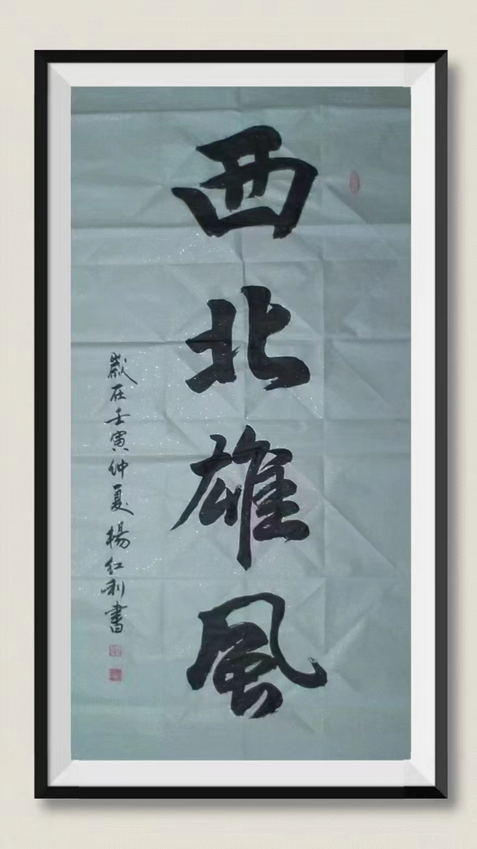 西北雄風
歲在壬寅仲夏楊红利書